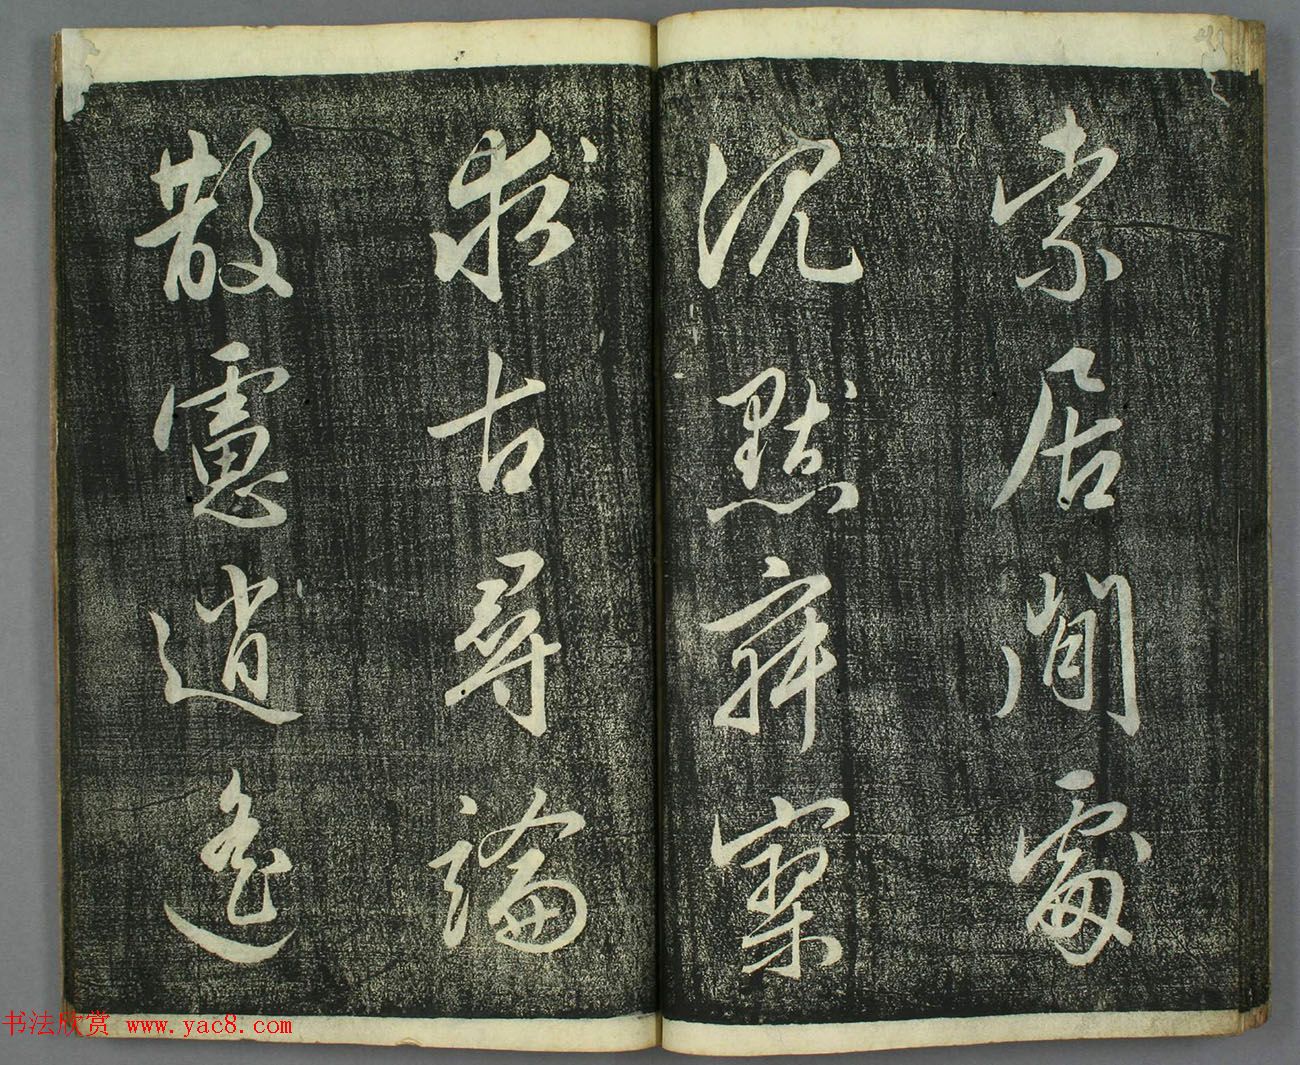 索居閒處
沉默寂寥
求古尋論
散慮逍遙
书法欣赏 www.yac8.com